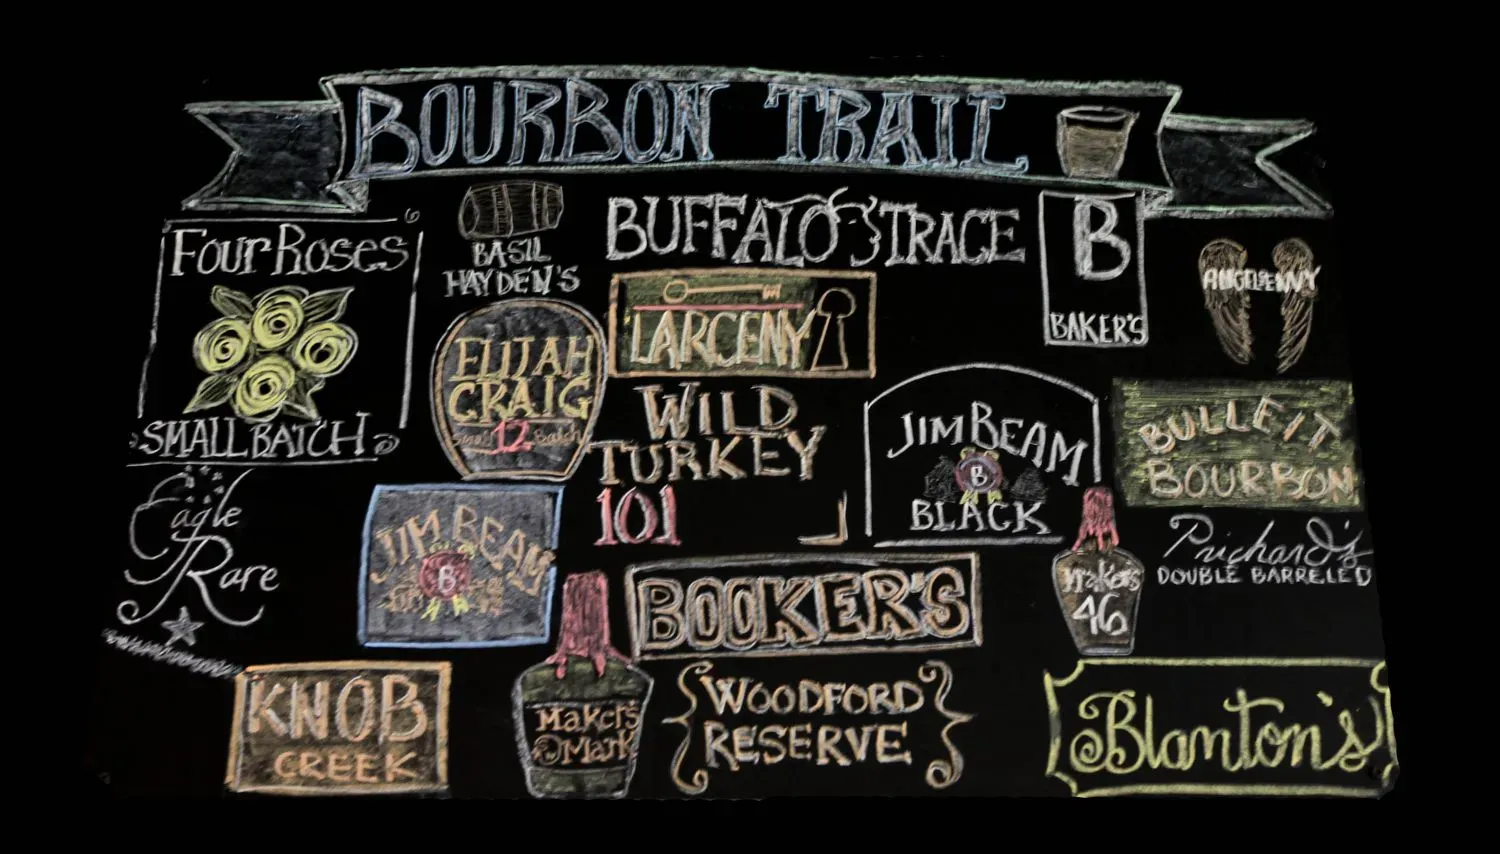 BOURBON TRAIL
FourRoses
SMALL BATCH
BASIL
HAYDEN'S
BUFFALO TRACE
B
BAKER'S
ANGELS ENVY
ELIJAH
CRAIG
Small 12 Batch
LARCENY
WILD
TURKEY
101
JIM BEAM
B
BLACK
BULLEIT
BOURBON
Eagle
Rare
JIM BEAM
B
BOOKER'S
Makers
46
Prichard's
DOUBLE BARRELED
KNOB
CREEK
Makers
Mark
WOODFORD
RESERVE
Blanton's